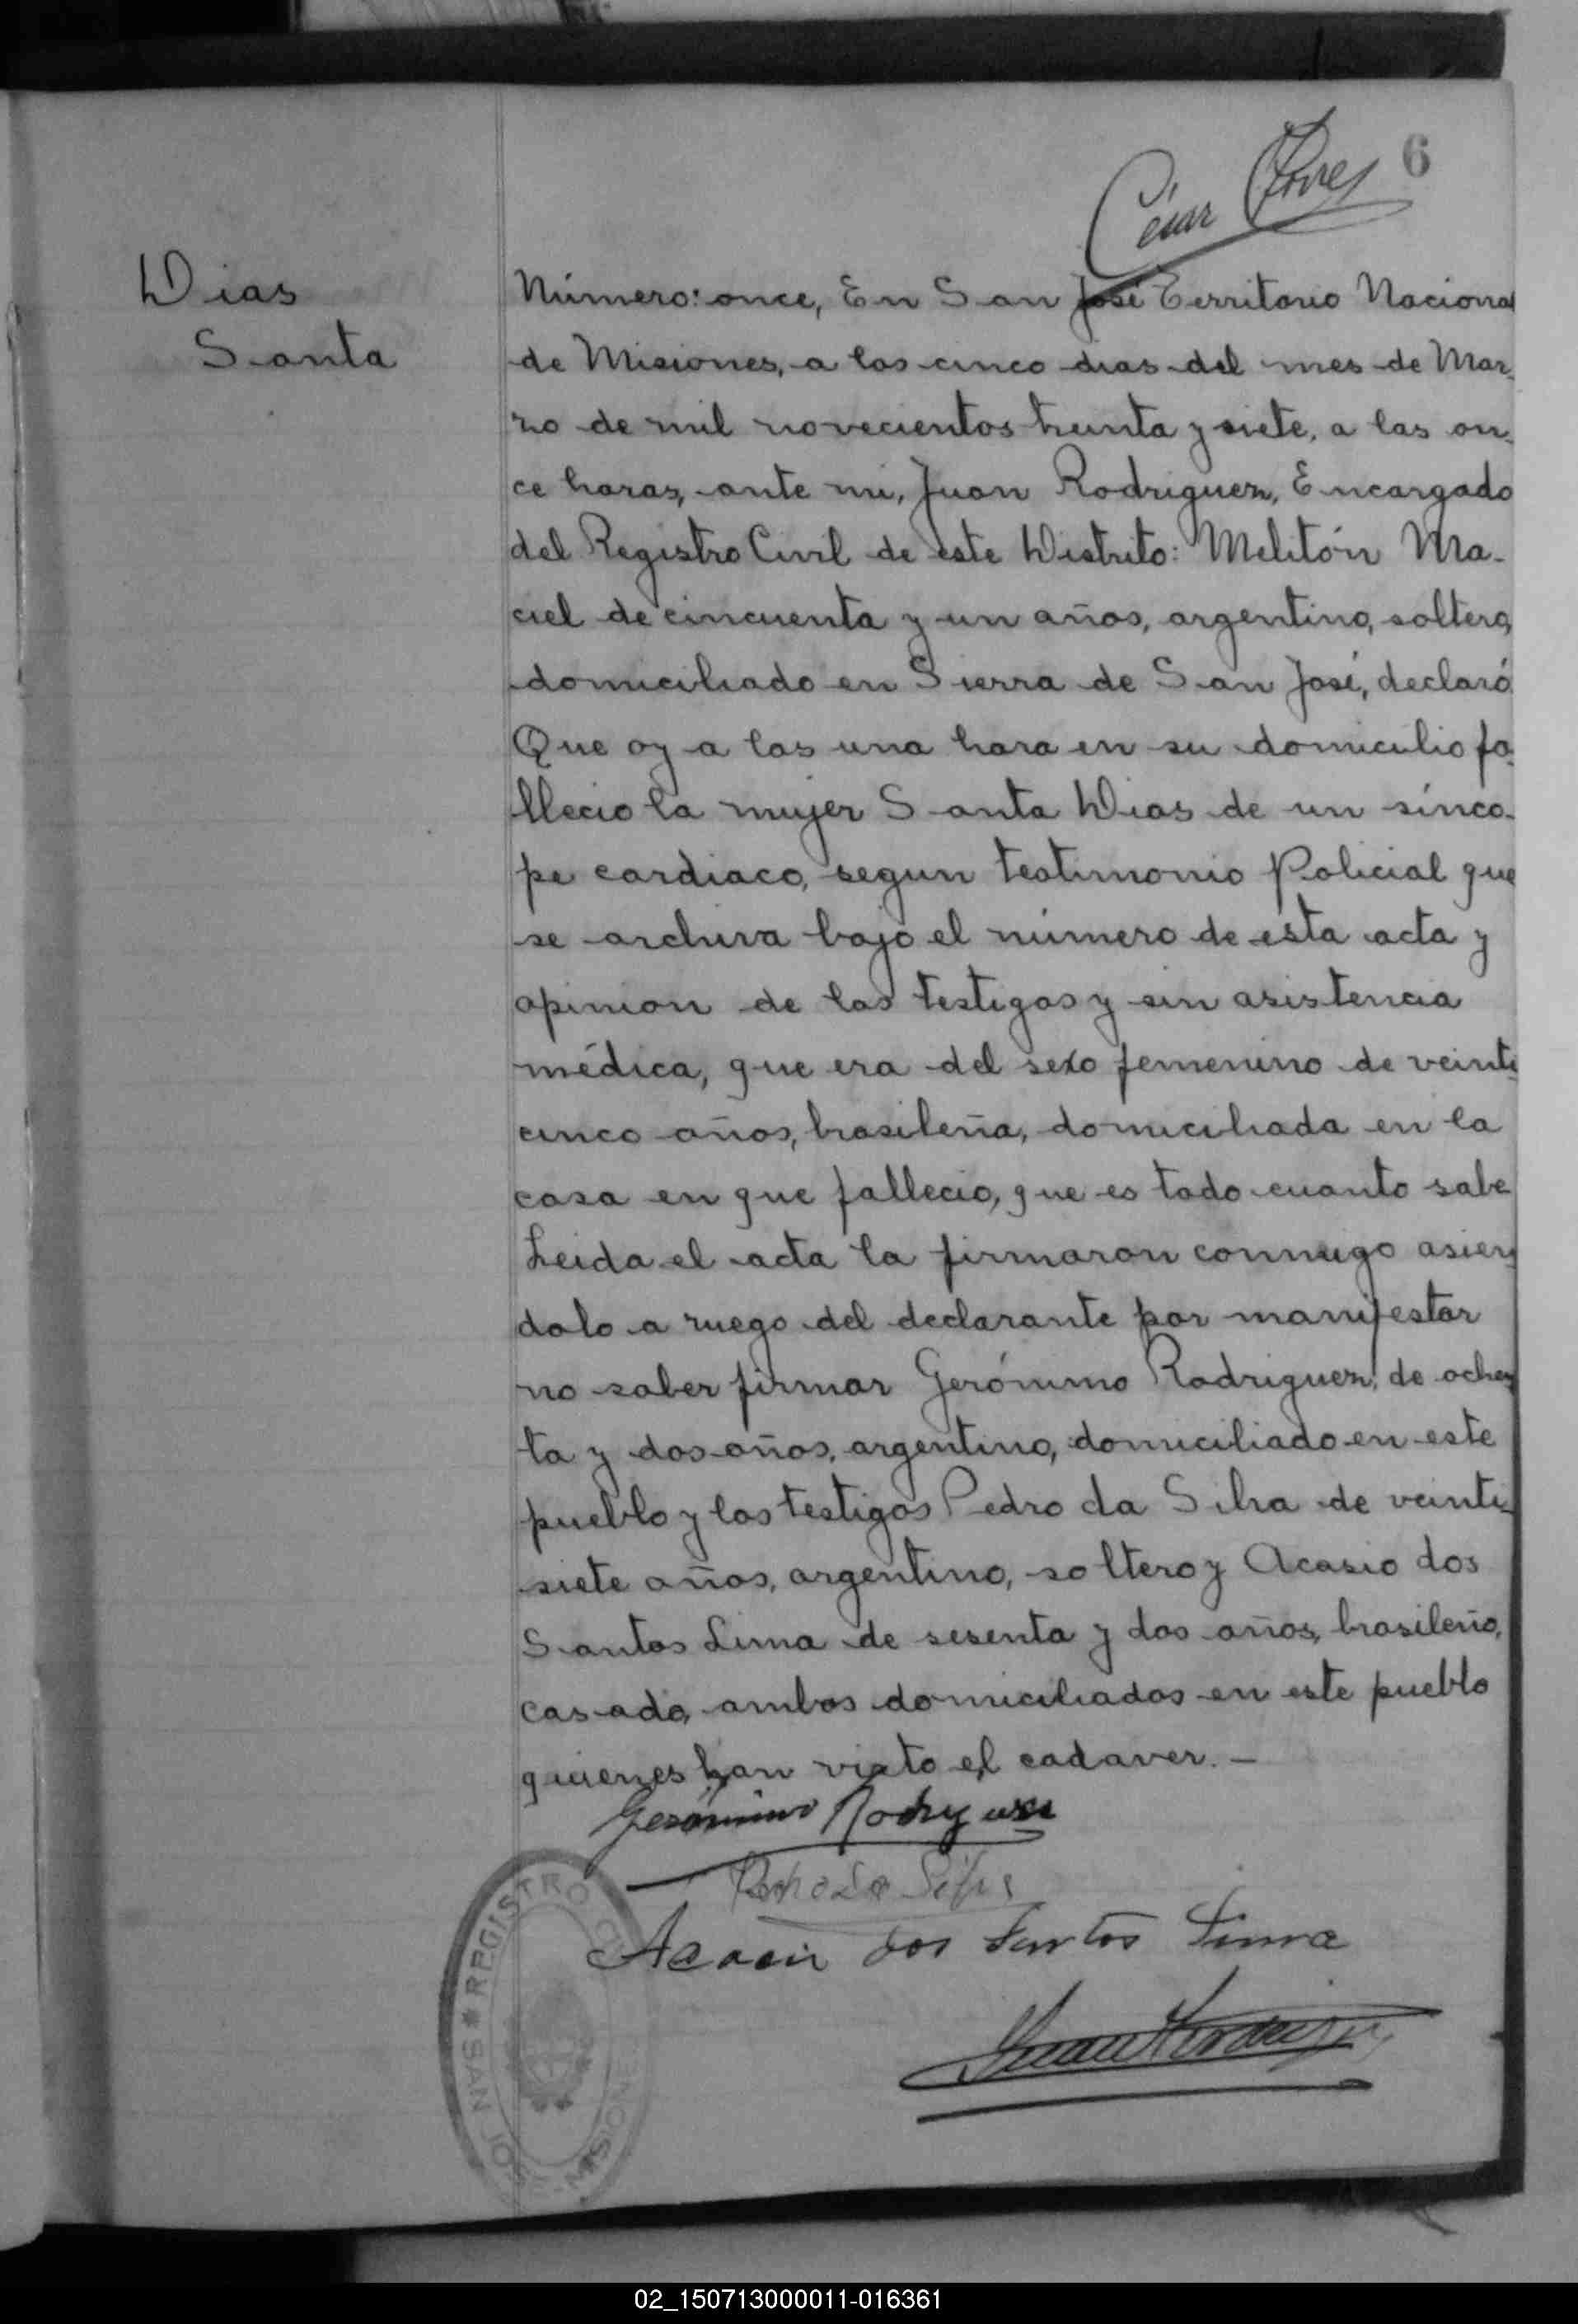 6
César Torres
Dias
Santa
Número: once, En San José Territorio Naciona
de Misiones, a los cinco dias del mes de Mar-
zo de mil novecientos treinta y siete, a las on-
ce horas, ante mi, Juan Rodriguez, Encargado
del Registro Civil de este Distrito: Melitón Ma-
ciel de cincuenta y un años, argentino, soltero,
domiciliado en Sierra de San José, declaró
Que oy a las una hora en su domicilio fa-
llecio la mujer Santa Dias de un sínco-
pe cardiaco, segun testimonio Policial que
se archiva bajo el número de esta acta y
opinion de los testigos y sin asistencia
médica, que era del sexo femenino de veinti-
cinco años, brasileña, domiciliada en la
casa en que fallecio, que es todo cuanto sabe
Leida el acta la firmaron conmigo asien-
dolo a ruego del declarante por manifestar
no saber firmar Gerónimo Rodriguez, de ochen-
ta y dos años, argentino, domiciliado en este
pueblo y los testigos Pedro da Silva de veinti-
siete años, argentino, soltero y Acasio dos
Santos Lima de sesenta y dos años, brasileño,
casado, ambos domiciliados en este pueblo
quienes han visto el cadaver. —
Gerónimo Rodriguez
Pedro Da Silva
Acacio dos Santos Lima
Juan Rodriguez
SAN JOSE * REGISTRO MISIONE
02_150713000011-016361